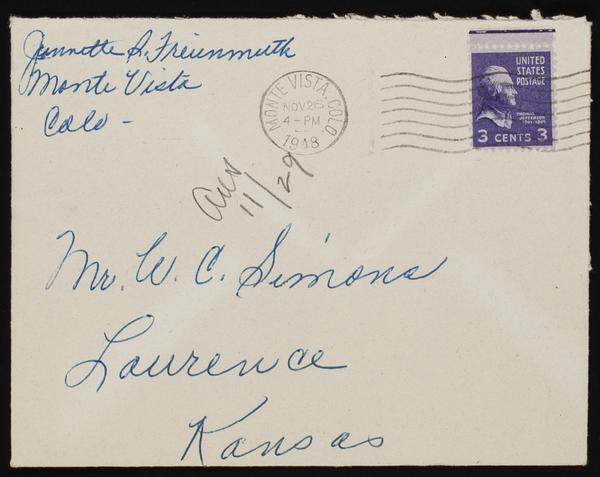 Jeannette R. Freienmuth
Monte Vista
Colo -
MONTE VISTA, COLO.
NOV 26
4 - PM
1948
UNITED
STATES
POSTAGE
THOMAS
JEFFERSON
1801-1809
3 CENTS 3
Ans
11/29
Mr. W. C. Simons
Lawrence
Kansas